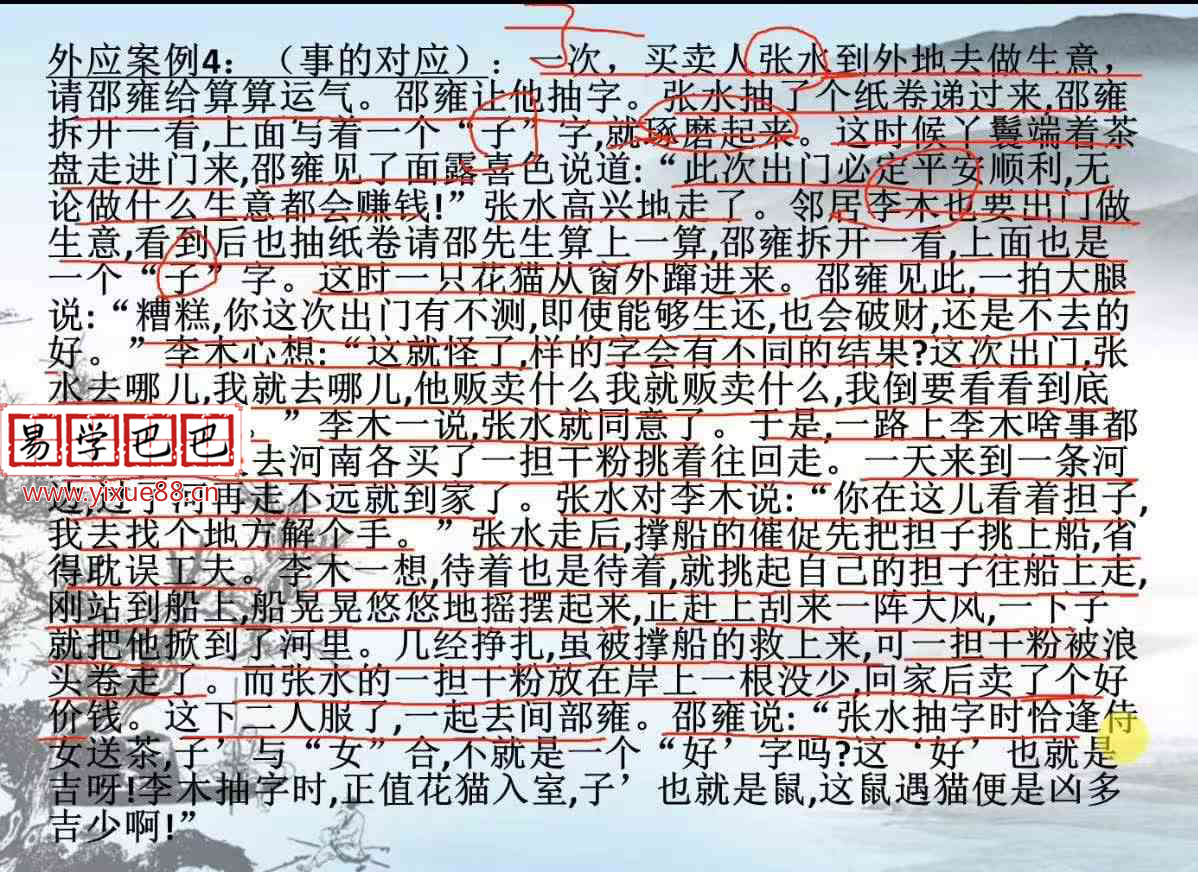 子
外应案例4：（事的对应）：一次，买卖人张水到外地去做生意，
请邵雍给算算运气。邵雍让他抽字。张水抽了个纸卷递过来,邵雍
拆开一看,上面写着一个“子”字,就琢磨起来。这时候丫鬟端着茶
盘走进门来,邵雍见了面露喜色说道:“此次出门必定平安顺利,无
论做什么生意都会赚钱!”张水高兴地走了。邻居李木也要出门做
生意,看到后也抽纸卷请邵先生算上一算,邵雍拆开一看,上面也是
一个“子”字。这时一只花猫从窗外蹿进来。邵雍见此,一拍大腿
说:“糟糕,你这次出门有不测,即使能够生还,也会破财,还是不去的
好。”李木心想:“这就怪了,样的字会有不同的结果?这次出门,张
水去哪儿,我就去哪儿,他贩卖什么我就贩卖什么,我倒要看看到底
。”李木一说,张水就同意了。于是,一路上李木啥事都
去河南各买了一担干粉挑着往回走。一天来到一条河
边,过了河再走不远就到家了。张水对李木说:“你在这儿看着担子,
我去找个地方解个手。”张水走后,撑船的催促先把担子挑上船,省
得耽误工夫。李木一想,待着也是待着,就挑起自己的担子往船上走,
刚站到船上,船晃晃悠悠地摇摆起来,正赶上刮来一阵大风,一下子
就把他掀到了河里。几经挣扎,虽被撑船的救上来,可一担干粉被浪
头卷走了。而张水的一担干粉放在岸上一根没少,回家后卖了个好
价钱。这下二人服了,一起去问部雍。邵雍说:“张水抽字时恰逢侍
女送茶,子’与“女”合,不就是一个“好’字吗?这‘好’也就是
吉呀!李木抽字时,正值花猫入室,子’也就是鼠,这鼠遇猫便是凶多
吉少啊!”
易学巴巴
www.yixue88.cn